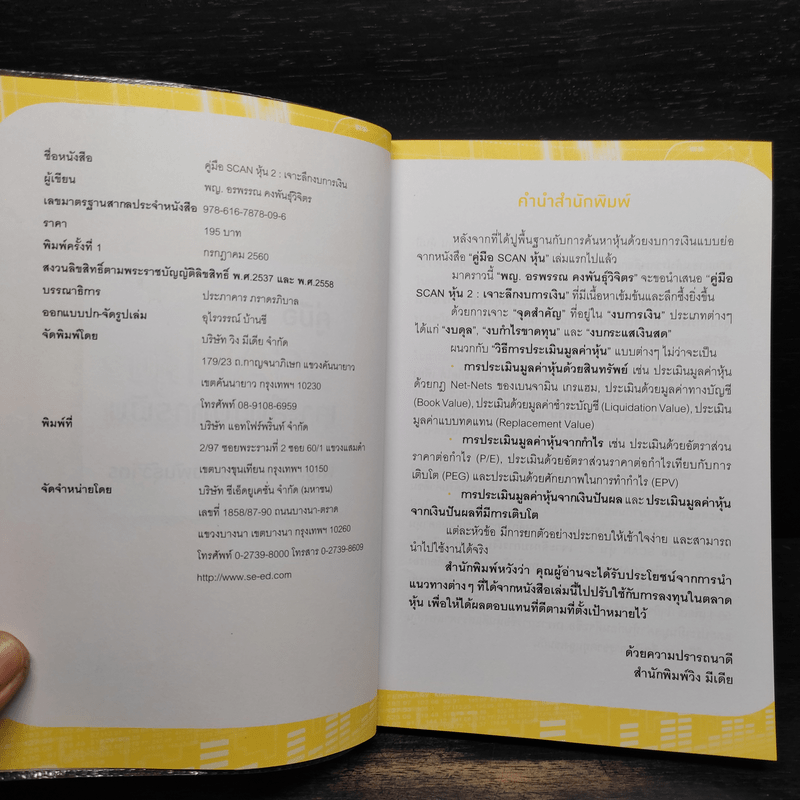 ชื่อหนังสือ คู่มือ SCAN หุ้น 2 : เจาะลึกงบการเงิน
ผู้เขียน พญ. อรพรรณ คงพันธุ์วิจิตร
เลขมาตรฐานสากลประจำหนังสือ 978-616-7878-09-6
ราคา 195 บาท
พิมพ์ครั้งที่ 1 กรกฎาคม 2560
สงวนลิขสิทธิ์ตามพระราชบัญญัติลิขสิทธิ์ พ.ศ.2537 และ พ.ศ.2558
บรรณาธิการ ประภาคาร ภราดรภิบาล
ออกแบบปก-จัดรูปเล่ม อุไรวรรณ์ บ้านชี
จัดพิมพ์โดย บริษัท วิง มีเดีย จำกัด
179/23 ถ.กาญจนาภิเษก แขวงคันนายาว
เขตคันนายาว กรุงเทพฯ 10230
โทรศัพท์ 08-9108-6959
พิมพ์ที่ บริษัท แอทโฟร์พริ้นท์ จำกัด
2/97 ซอยพระรามที่ 2 ซอย 60/1 แขวงแสมดำ
เขตบางขุนเทียน กรุงเทพฯ 10150
จัดจำหน่ายโดย บริษัท ซีเอ็ดยูเคชั่น จำกัด (มหาชน)
เลขที่ 1858/87-90 ถนนบางนา-ตราด
แขวงบางนา เขตบางนา กรุงเทพฯ 10260
โทรศัพท์ 0-2739-8000 โทรสาร 0-2739-8609
http://www.se-ed.com
คำนำสำนักพิมพ์
หลังจากที่ได้ปูพื้นฐานกับการค้นหาหุ้นด้วยงบการเงินแบบย่อ
จากหนังสือ "คู่มือ SCAN หุ้น" เล่มแรกไปแล้ว
มาคราวนี้ "พญ. อรพรรณ คงพันธุ์วิจิตร" จะขอนำเสนอ "คู่มือ
SCAN หุ้น 2 : เจาะลึกงบการเงิน" ที่มีเนื้อหาเข้มข้นและลึกซึ้งยิ่งขึ้น
ด้วยการเจาะ "จุดสำคัญ" ที่อยู่ใน "งบการเงิน" ประเภทต่างๆ
ได้แก่ "งบดุล", "งบกำไรขาดทุน" และ "งบกระแสเงินสด"
ผนวกกับ "วิธีการประเมินมูลค่าหุ้น" แบบต่างๆ ไม่ว่าจะเป็น
• การประเมินมูลค่าหุ้นด้วยสินทรัพย์ เช่น ประเมินมูลค่าหุ้น
ด้วยกฎ Net-Nets ของเบนจามิน เกรแฮม, ประเมินด้วยมูลค่าทางบัญชี
(Book Value), ประเมินด้วยมูลค่าชำระบัญชี (Liquidation Value), ประเมิน
มูลค่าแบบทดแทน (Replacement Value)
• การประเมินมูลค่าหุ้นจากกำไร เช่น ประเมินด้วยอัตราส่วน
ราคาต่อกำไร (P/E), ประเมินด้วยอัตราส่วนราคาต่อกำไรเทียบกับการ
เติบโต (PEG) และประเมินด้วยศักยภาพในการทำกำไร (EPV)
• การประเมินมูลค่าหุ้นจากเงินปันผล และประเมินมูลค่าหุ้น
จากเงินปันผลที่มีการเติบโต
แต่ละหัวข้อ มีการยกตัวอย่างประกอบให้เข้าใจง่าย และสามารถ
นำไปใช้งานได้จริง
สำนักพิมพ์หวังว่า คุณผู้อ่านจะได้รับประโยชน์จากการนำ
แนวทางต่างๆ ที่ได้จากหนังสือเล่มนี้ไปปรับใช้กับการลงทุนในตลาด
หุ้น เพื่อให้ได้ผลตอบแทนที่ดีตามที่ตั้งเป้าหมายไว้
ด้วยความปรารถนาดี
สำนักพิมพ์วิง มีเดีย